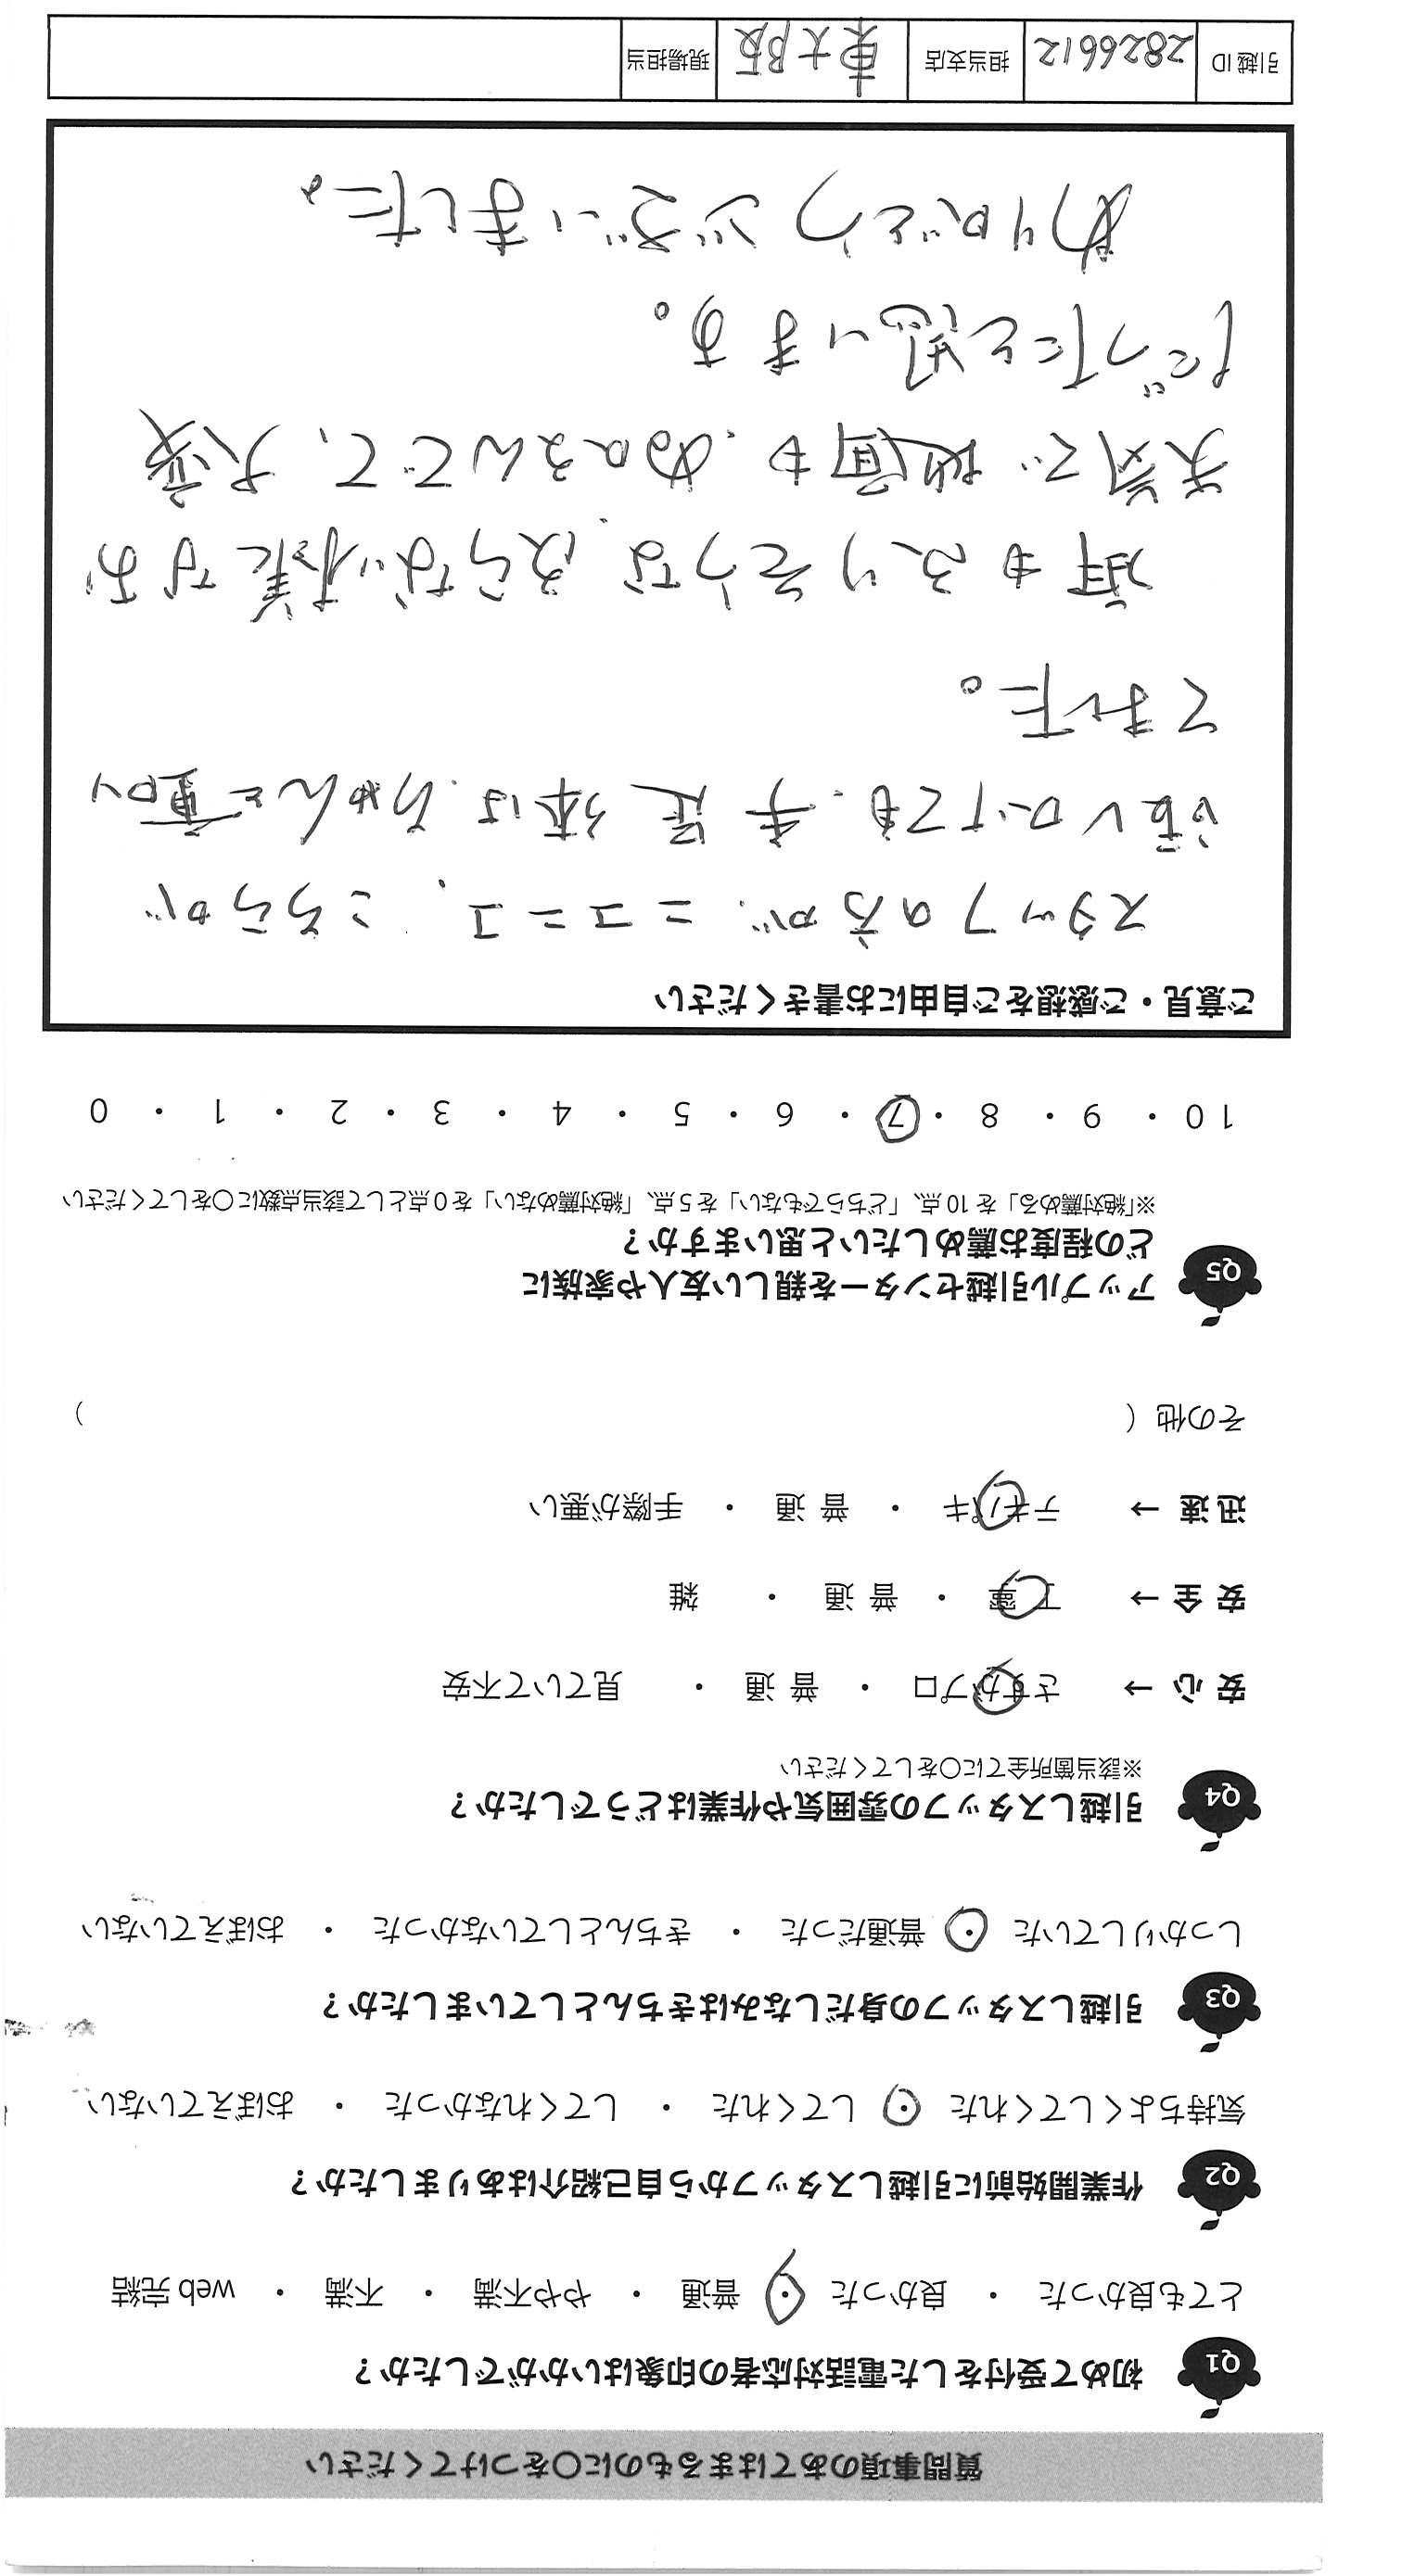 質問事項のあてはまるものに〇をつけてください
Q1 初めて受付をした電話対応者の印象はいかがでしたか?
とても良かった ・ 良かった ・ 普通 ・ やや不満 ・ 不満 ・ web 完結
Q2 作業開始前に引越しスタッフから自己紹介はありましたか?
気持ちよくしてくれた ・ してくれた ・ してくれなかった ・ おぼえていない
Q3 引越しスタッフの身だしなみはきちんとしていましたか?
しっかりしていた ・ 普通だった ・ きちんとしていなかった ・ おぼえていない
Q4 引越しスタッフの雰囲気や作業はどうでしたか?
※該当箇所全てに〇をしてください
安 心 → さすがプロ ・ 普 通 ・ 見ていて不安
安 全 → 丁 寧 ・ 普 通 ・ 雑
迅 速 → テキパキ ・ 普 通 ・ 手際が悪い
その他 ( )
Q5 アップル引越センターを親しい友人や家族に
どの程度お薦めしたいと思いますか?
※「絶対薦める」を 10 点、「どちらでもない」を 5 点、「絶対薦めない」を 0 点として該当点数に〇をしてください
10 ・ 9 ・ 8 ・ 7 ・ 6 ・ 5 ・ 4 ・ 3 ・ 2 ・ 1 ・ 0
ご意見・ご感想をご自由にお書きください
スタッフの方が、ニコニコ、こちらが
話しかけても、手足体は、ちゃんと動い
てました。
雨もふりそうな、ふらない様なお
天気で地面も、ぬかるんでて、大変
だったと思います。
ありがとうございました。
引越 ID 2826612 担当支店 東大阪 現場担当